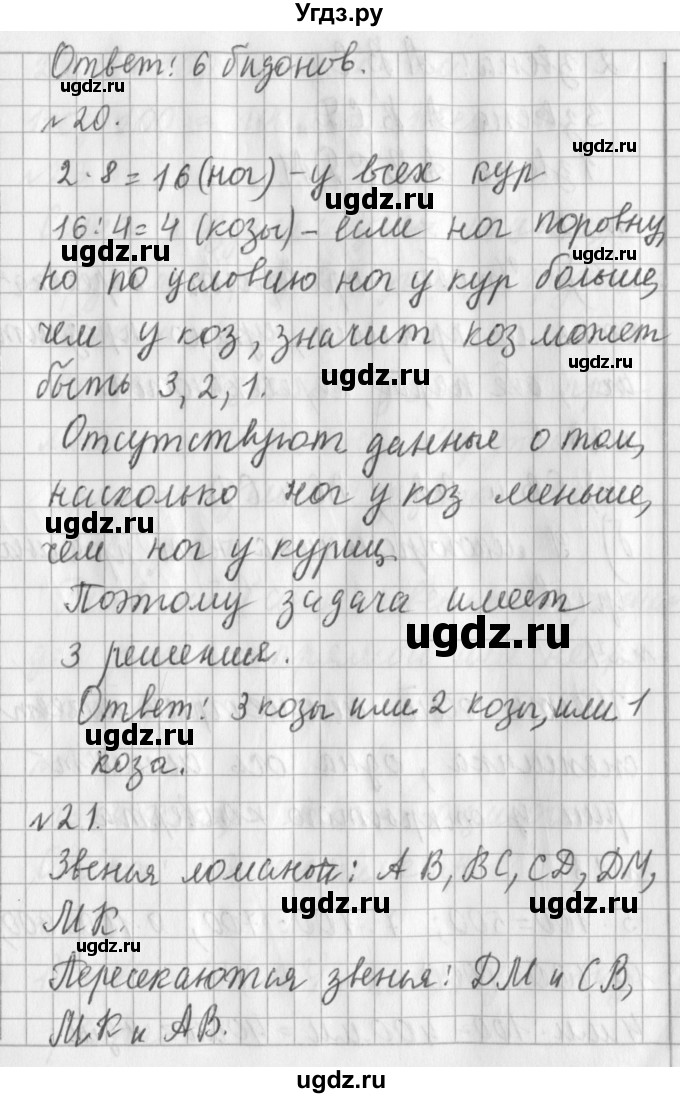 Угдз.ру
Ответ: 6 бидонов.
ugdz.ru
№20.
ugdz.ru
2·8=16(ног) - у всех кур
ugdz.ru
16:4=4 (козы) - если ног поровну,
ugdz.ru
но по условию ног у кур больше,
ugdz.ru
чем у коз, значит коз может
ugdz.ru
ugdz.ru
быть 3, 2, 1.
Отсутствуют данные о том,
насколько ног у коз меньше,
ugdz.ru
чем ног у куриц.
Поэтому задача имеет
ugdz.ru
3 решения.
Ответ: 3 козы или 2 козы, или 1
ugdz.ru
коза.
№21.
Звенья ломаной: AB, BC, CD, DM,
ugdz.ru ugdz.ru
MK.
ugdz.ru
Пересекаются звенья: DM и CB,
ugdz.ru
MK и AB.
ugdz.ru